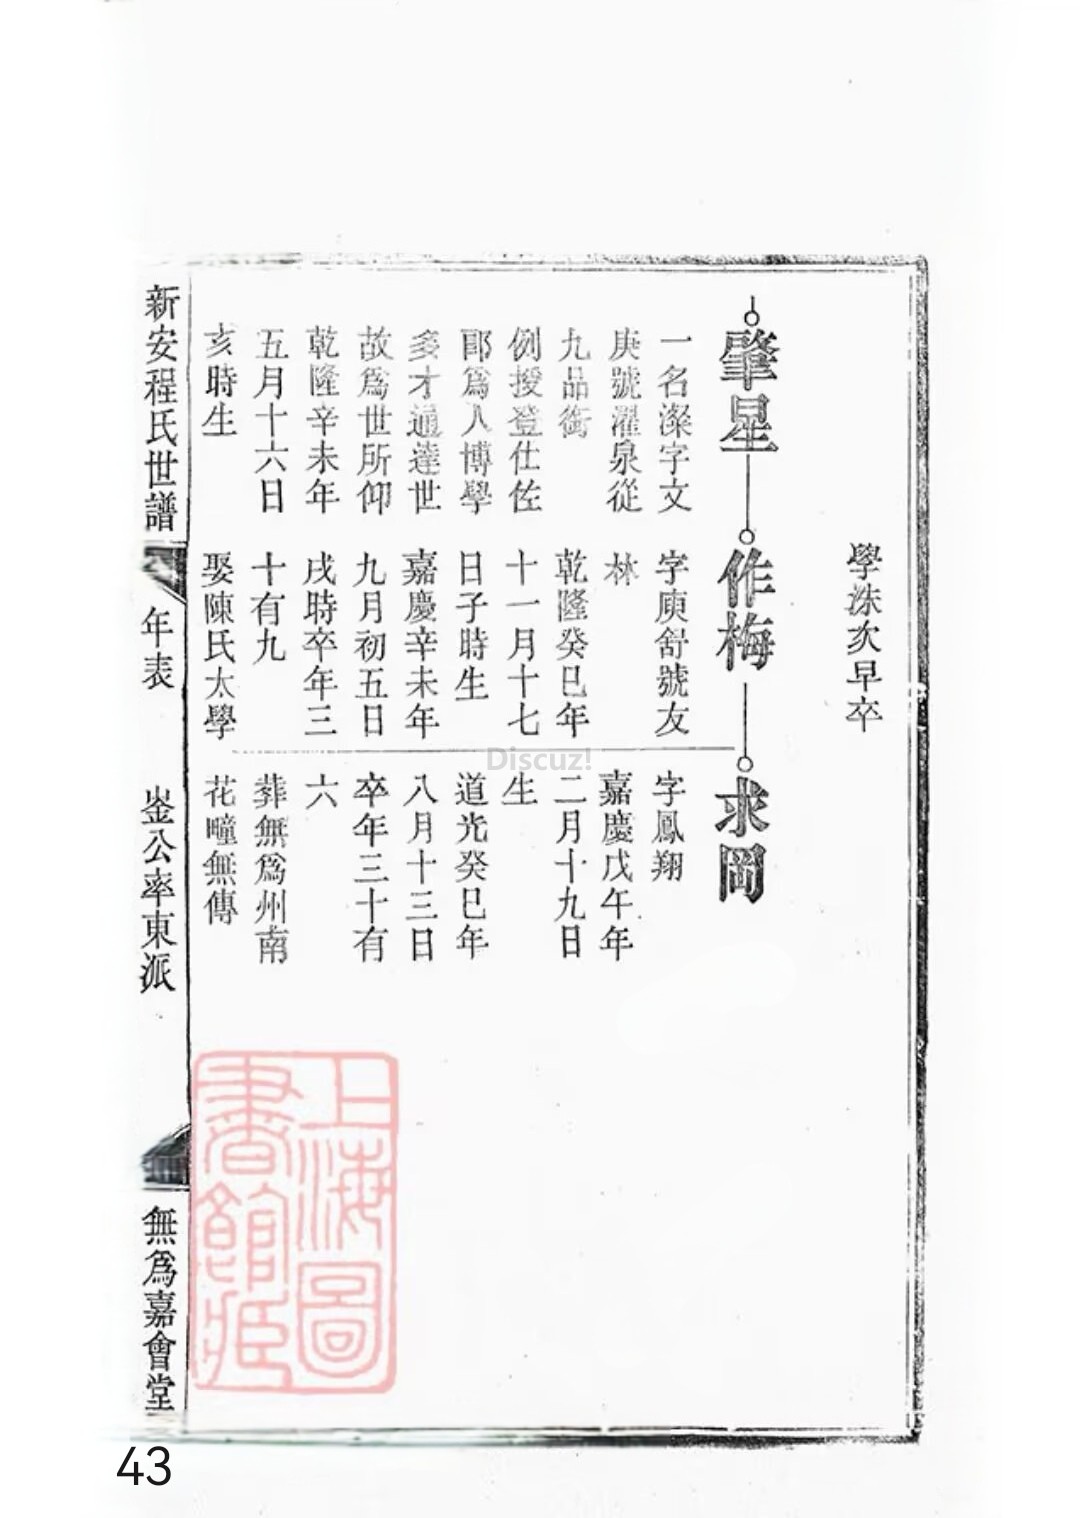 學洙次早卒
肇星
一名溁字文
庚號濯泉從
九品銜
例授登仕佐
郎爲人博學
多才通達世
故爲世所仰
乾隆辛未年
五月十六日
亥時生
作梅
字庾舒號友
林
乾隆癸巳年
十一月十七
日子時生
嘉慶辛未年
九月初五日
戌時卒年三
十有九
娶陳氏太學
求岡
字鳳翔
嘉慶戊午年
二月十九日
生
道光癸巳年
八月十三日
卒年三十有
六
葬無爲州南
花疃無傳
新安程氏世譜
年表
崟公率東派
無爲嘉會堂
上海圖
書館藏
Discuz!
43